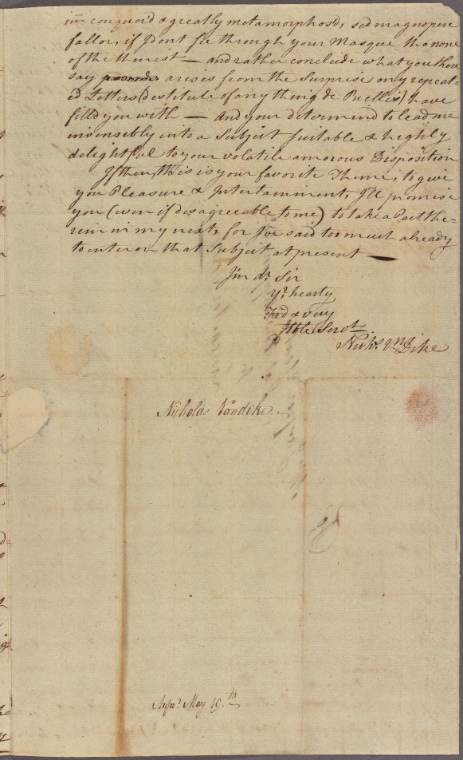 conquerd & greatly metamorphosd, sed magnopere
fallor, if I dont see through your Masque tho none
of the thinest — and rather conclude what you there
say arises from the Surprise my repeat-
ed Letters (destitute of any thing de Puellis) have
filld you with — And your determind to lead me
insensibly into a Subject suitable & highly
delightful to your volatile amorous Disposition
If then, this is your favorite Theme, to give
you Pleasure & Intertainment, I'll promise
you (even if disagreeable to me) to take a Part the-
rein in my next, for I've said too much already
to enter on that Subject at present —
I'm dr. Sir
Yr. hearty
Frd & very
Hble Servt.
Nichs. VnDike
Nicholas Vandike
May 19th.